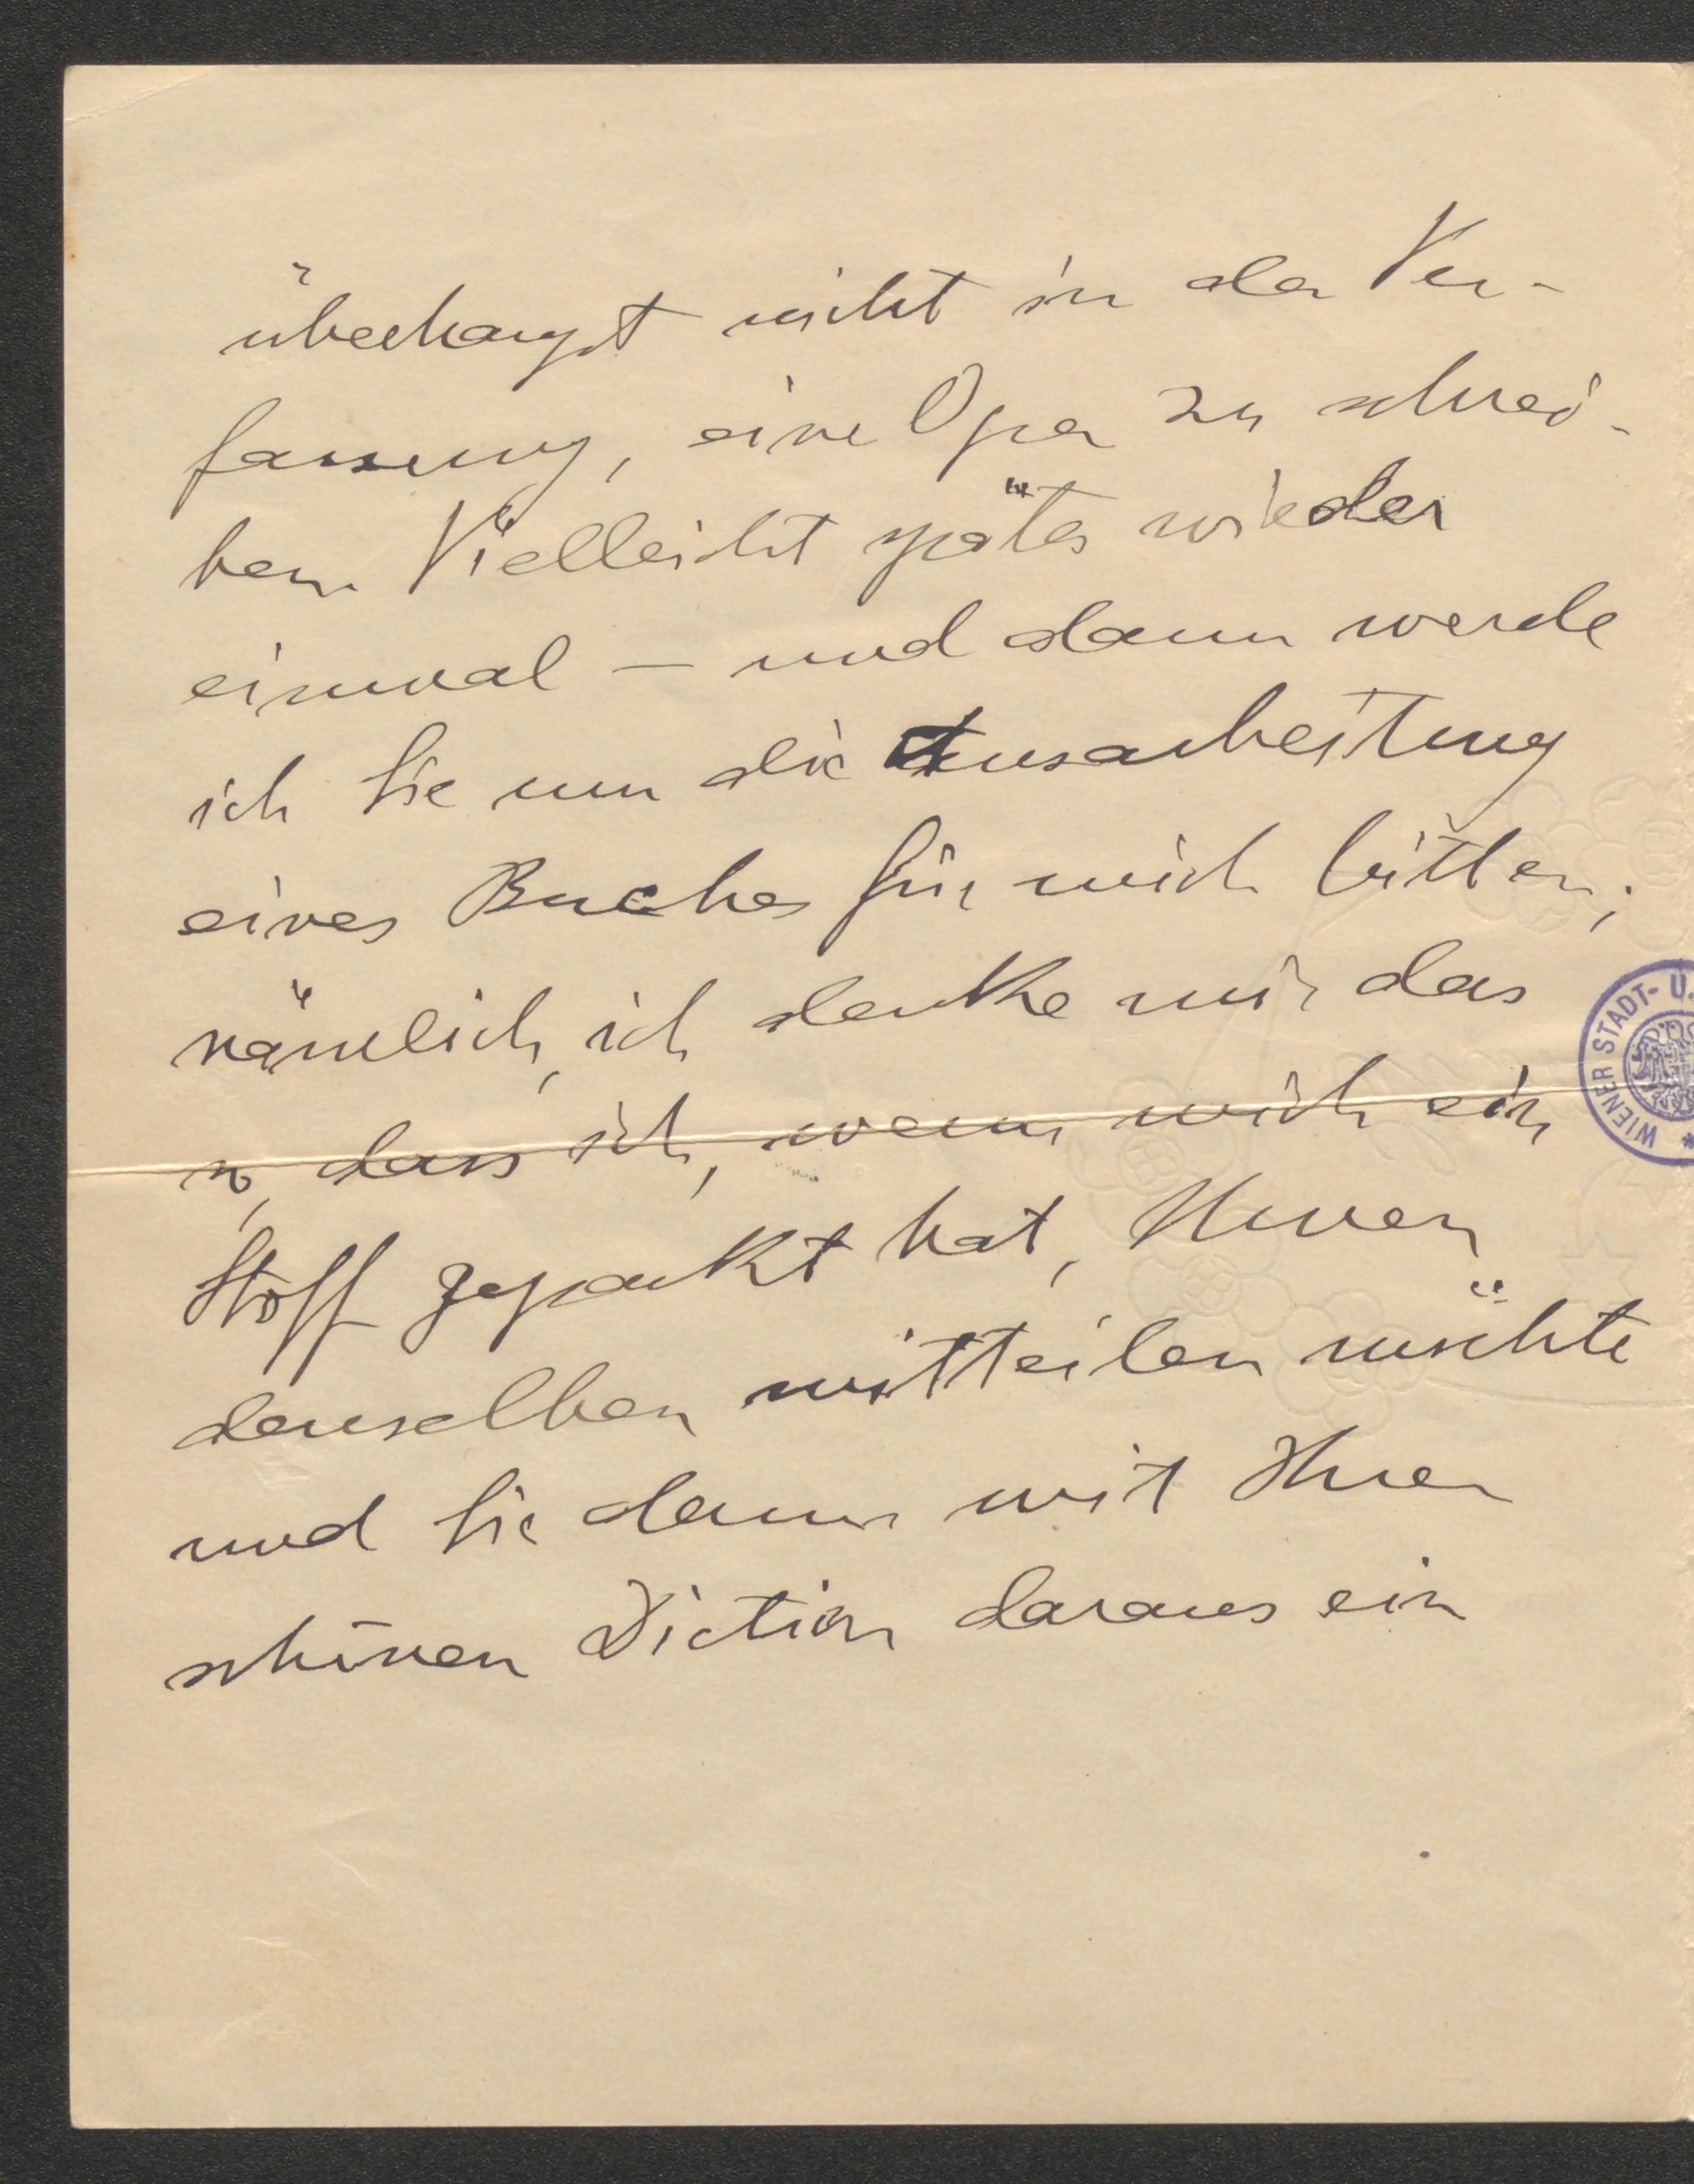 überhaupt nicht in der Ver-
fassung, eine Oper zu schrei-
ben. Vielleicht später wieder
einmal — und dann werde
ich Sie um die Ausarbeitung
eines Buches für mich bitten;
nämlich, ich denke mir das
so, dass ich, wenn mich ein
Stoff gepackt hat, Ihnen
denselben mitteilen möchte
und Sie dann mit Ihrer
schönen Diction daraus ein
WIENER STADT- U.